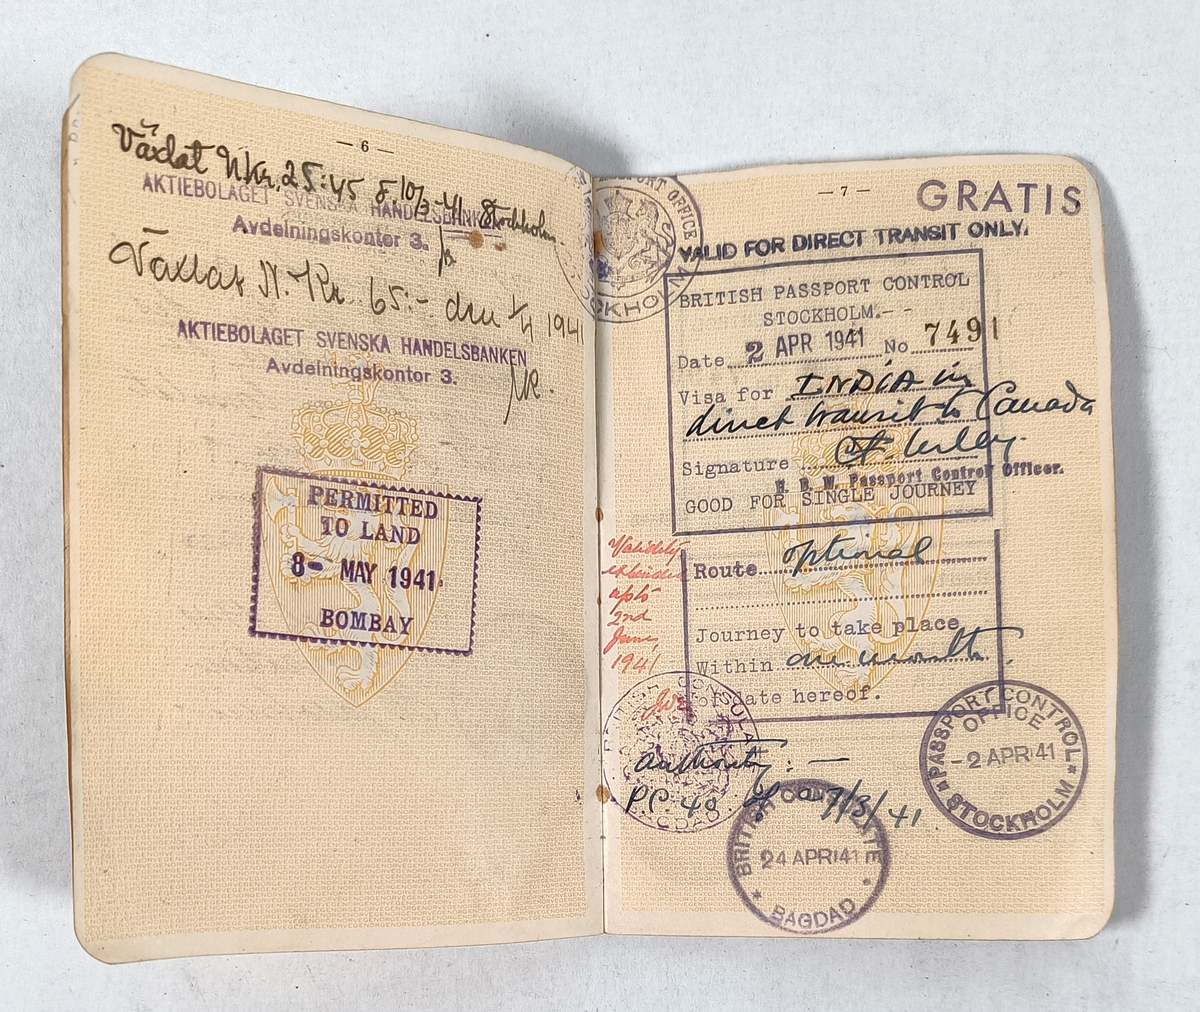 — 6 —
Växlat N.Kr. 25:45 d. 10/3-41 Stockholm.
AKTIEBOLAGET SVENSKA HANDELSBANKEN
Avdelningskontor 3.
Växlat N. Kr. 65:- den 1/4 1941
AKTIEBOLAGET SVENSKA HANDELSBANKEN
Avdelningskontor 3.
PERMITTED
TO LAND
8- MAY 1941
BOMBAY
— 7 —
GRATIS
VALID FOR DIRECT TRANSIT ONLY.
PORT OFFICE
BRITISH PASSPORT CONTROL
STOCKHOLM.- -
Date 2 APR 1941 No 7491
Visa for INDIA in
direct transit to Canada
Signature
H. B. M. Passport Control Officer.
GOOD FOR SINGLE JOURNEY
Route optional
Journey to take place
Within one month
of date hereof.
Validity
extended
upto
2nd
June,
1941
authority: —
P.C. 40 of 27/3/41
PASSPORT CONTROL
OFFICE
-2 APR 41
STOCKHOLM
BRITISH CONSULATE
24 APR 41
BAGDAD